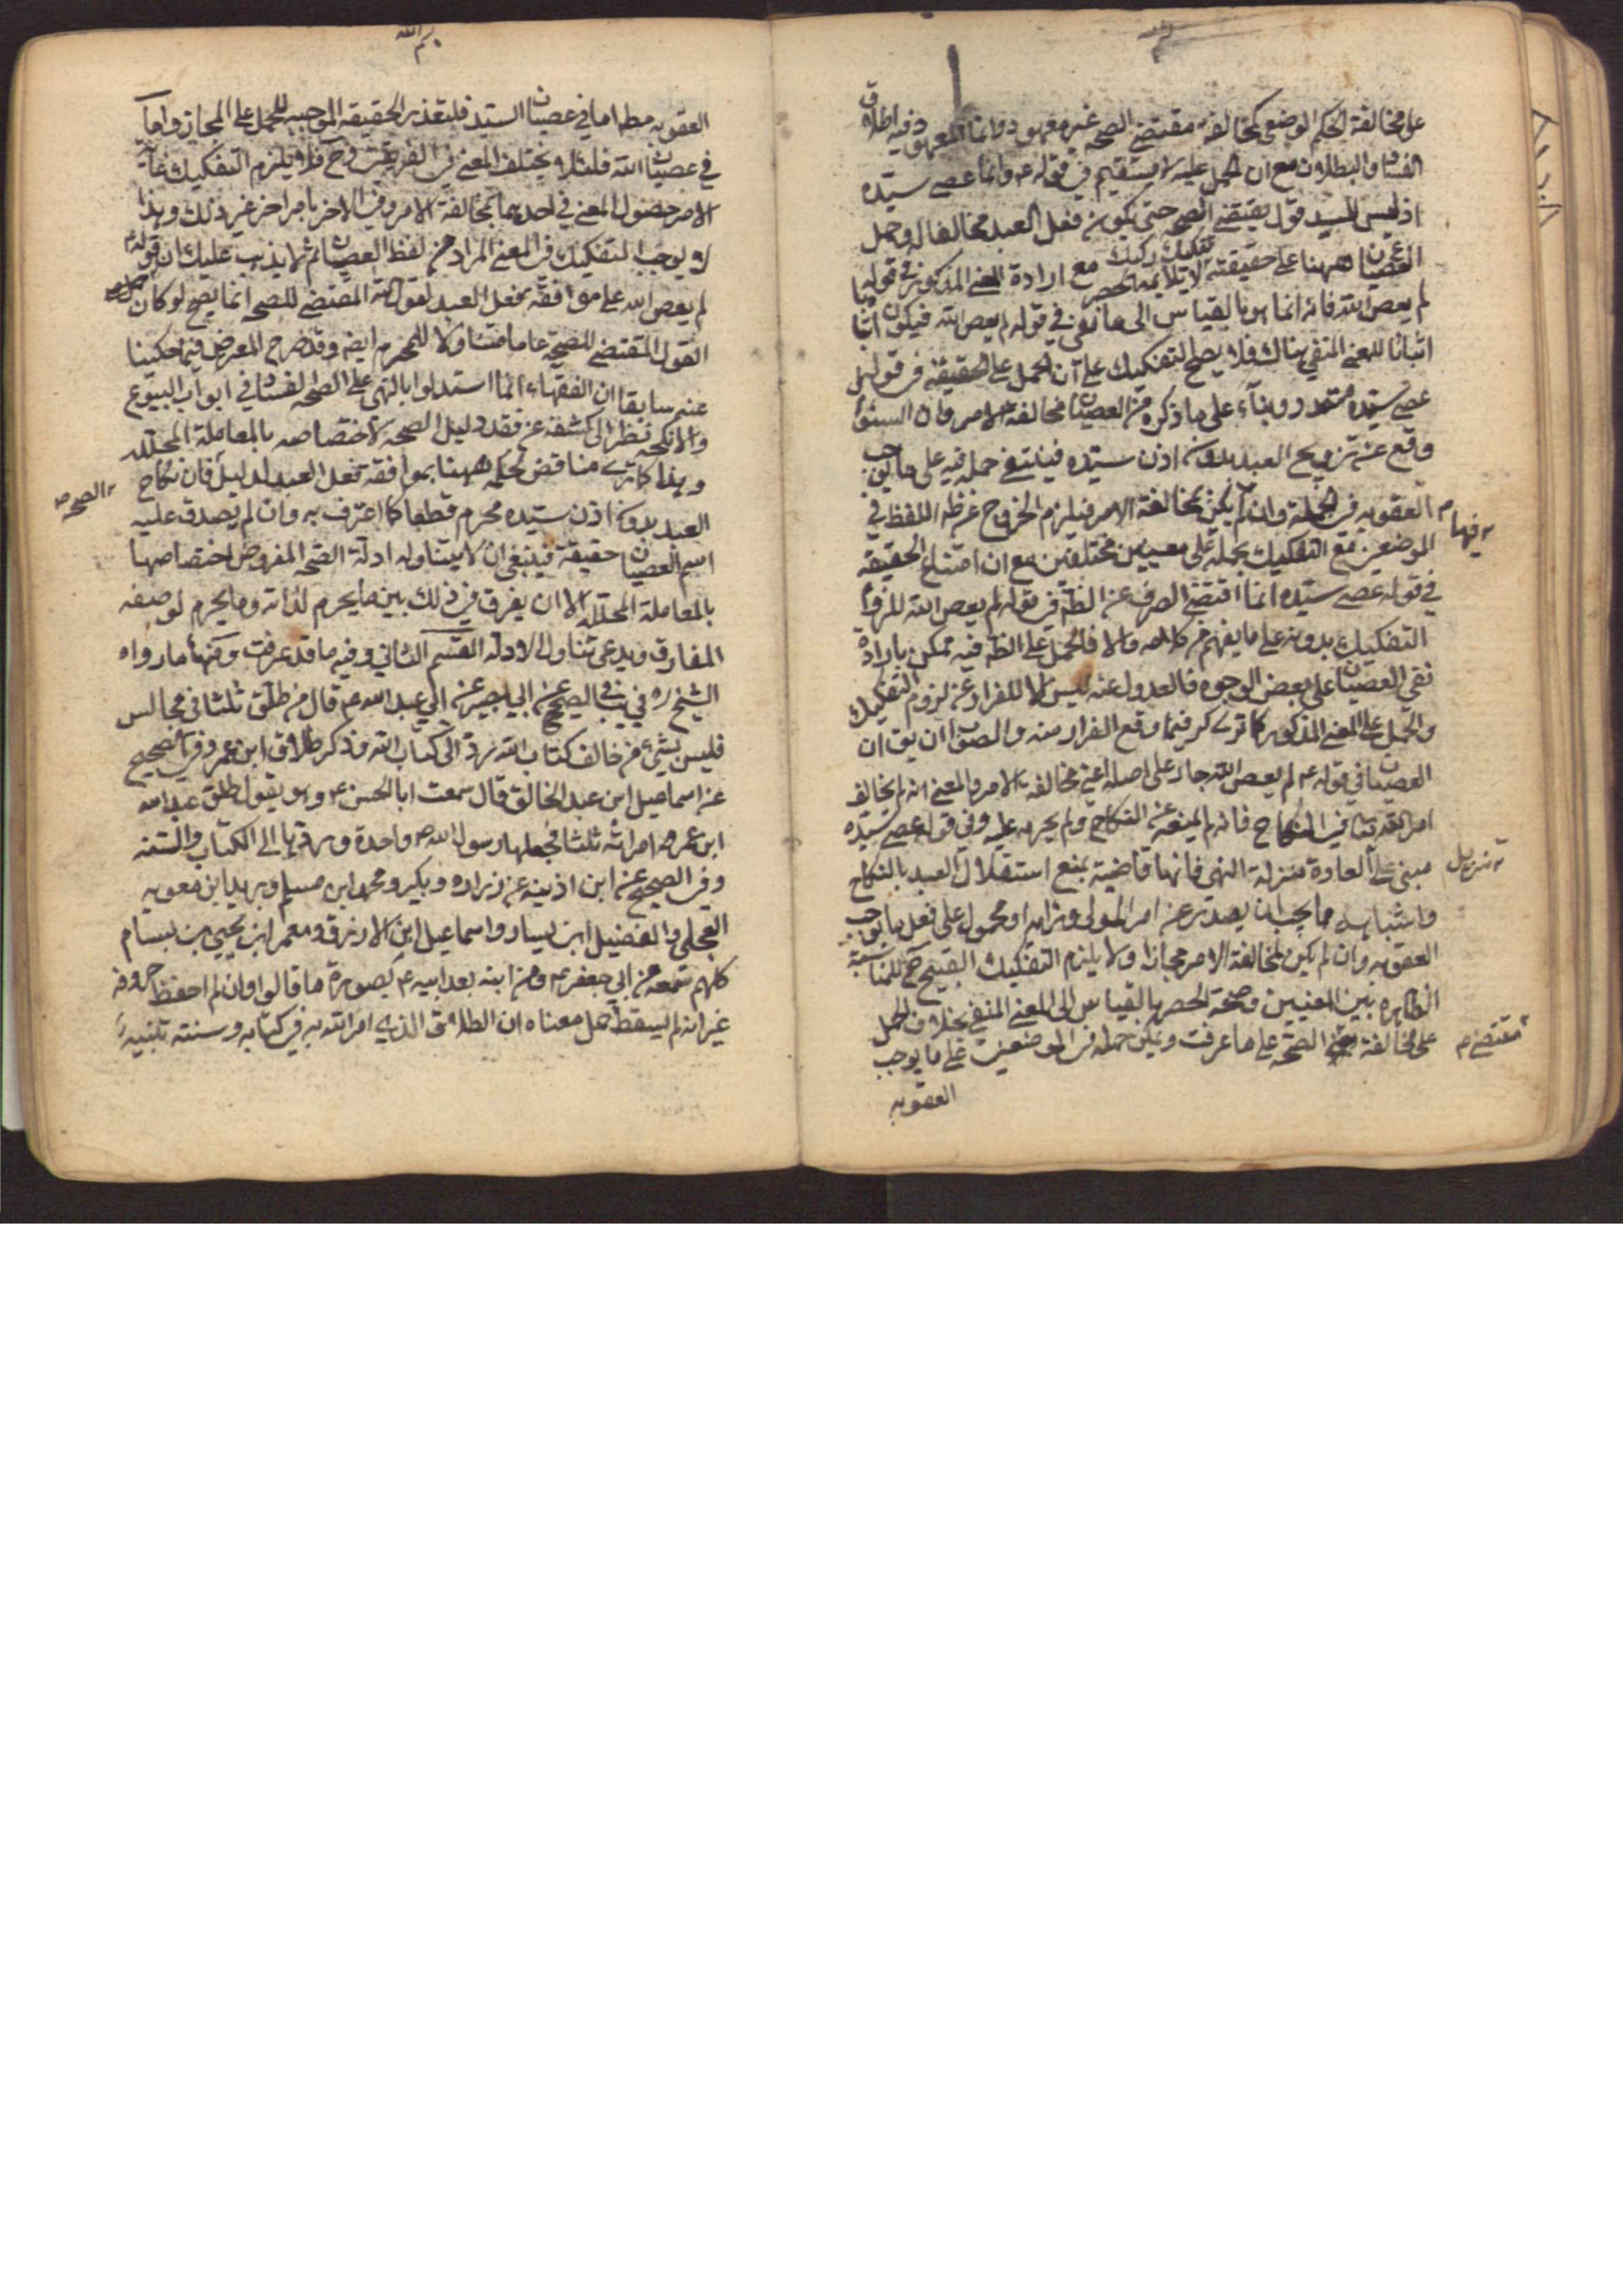 على مخالفة الحكم الوضعي كمخالفة مقتضى الصحة غير معهود وانما المعهود فيه اطلاق
الفساد والبطلان مع ان الحمل عليه لا يستقيم في قوله ع وانما عصى سيّده
اذ ليس للسيد قول يقتضي الصحة حتى يكون فعل العبد مخالفا له وحمل
العصيان ههنا على حقيقته تفكيك ركيك لا يلايمه الحصر مع ارادة المعنى المذكور في قوله
لم يعص الله فانه انما هو بالقياس الى ما نفى في قوله لم يعص الله فيكون
اثباتا للمعنى المنفي هناك فلا يصح التفكيك على ان الحمل على الحقيقة في قوله
عصى سيّده بناء على ما ذكره من العصيان مخالفة الامر فان السؤال
وقع عن تزويج العبد بدون اذن سيّده فينبغي حمله فيه على ما يوجب
العقوبه في الجملة وان لم يكن بمخالفة الامر فيلزم الخروج عن ظ اللفظ في
الموضعين مع التفكيك بحمله على معنيين مختلفين مع ان امتناع الحقيقة فيها م
في قوله عصى سيّده انما اقتضى الصرف عن الظ في قوله لم يعص الله للزوم
التفكيك بدونه على ما يفهم من كلامه والا فالحمل على الظ فيه ممكن بارادة
نفى العصيان على بعض الوجوه فالعدول عنه ليس الا للفرار عن لزوم التفكيك
والحمل على المعنى المذكور كما ترى كر فيما وقع الفرار منه والصواب ان يق ان
العصيان في قوله ع لم يعص الله جار على اصله اعني مخالفة الامر والمعنى انه لم يخالف
امر الله تعا في النكاح فانه لم يمنعه عن النكاح ولم يحرمه عليه وفي قوله عصى سيّده
مبنى على تنزيل العادة منزلة النهى فانها قاضية بمنع استقلال العبد بالنكاح
واشباهه مما يجب ان يصدر عن امر المولى او محمول على فعل ما يوجب
العقوبه وان لم يكن مخالفة الامر مجازا ولا يلزم التفكيك القبيح ح للمناسبة
الظاهره بين المعنيين وصحة الحصر بالقياس الى المعنى المنفي بخلاف الحمل
على مخالفة مقتضى م الصحة على ما عرفت ويمكن حمله في الموضعين على ما يوجب
العقوبه
العقوبه مط اما في عصيان السيد فلتعذر الحقيقة الموجبه للحمل على المجاز واما
في عصيان الله فلئلا يختلف المعنى في الفريقين وح فلا يلزم التفكيك غاية
الامر حصول المعنى في احدهما بمخالفة الامر وفي الاخر بامر اخر غير ذلك وهذا
لا يوجب التفكيك في المعنى المراد من لفظ العصيان ثم لا يذهب عليك ان قوله
لم يعص الله على موافقة فعل العبد لقوله تعا المقتضى للصحه انما يصح لو كان
القول المقتضى للصحة عاما متناولا للمحرم ايضه وقد صرح المعرض فيما حكينا
عنه سابقا ان الفقهاء انما استدلوا بالنهى على الفساد في ابواب البيوع
والانكحة نظرا الى كشفه عن فقد دليل الصحة لاختصاصه بالمعاملة المحللة
وهذا كما ترى مناقض لحكمه ههنا بموافقة فعل العبد لدليل الصحه فان نكاح
العبد بدون اذن سيّده محرم قطعا كما اعترف به وان لم يصدق عليه
اسم العصيان حقيقة فينبغي ان لا يتناوله ادلّة الصحة المفروض اختصاصها
بالمعاملة المحللة الا ان يفرق في ذلك بين ما يحرم لذاته وما يحرم لوصفه
المفارق ويدعى تناول الادلة القسم الثاني وفيه ما قد عرفت ومنها ما رواه
الشيخ ره في يب في الصحيح عن ابي بصير عن ابي عبد الله ع قال من طلّق ثلثا في مجالس
فليس بشئ من خالف كتاب الله رد الى كتاب الله وذكر طلاق ابن عمر وفي الصحيح
عن اسماعيل ابن عبد الخالق قال سمعت ابا الحسن ع وهو يقول طلّق عبد الله
ابن عمر امراته ثلثا فجعلها رسول الله ص واحدة وردّها الى الكتاب والسنة
وفي الصحيح عن ابن اذينه عن زراره وبكير ومحمد ابن مسلم وبريد ابن معويه
العجلى والفضيل ابن يسار واسماعيل ابن الازرق ومعمر ابن يحيى بن بسام
كلهم سمعه من ابي جعفر ع ومن ابنه بعد ابيه ع بصورة ما قالوا وان لم احفظ حروفه
غير انه لم يسقط جمل معناه ان الطلاق الذي امر الله به في كتابه وسنة نبيه